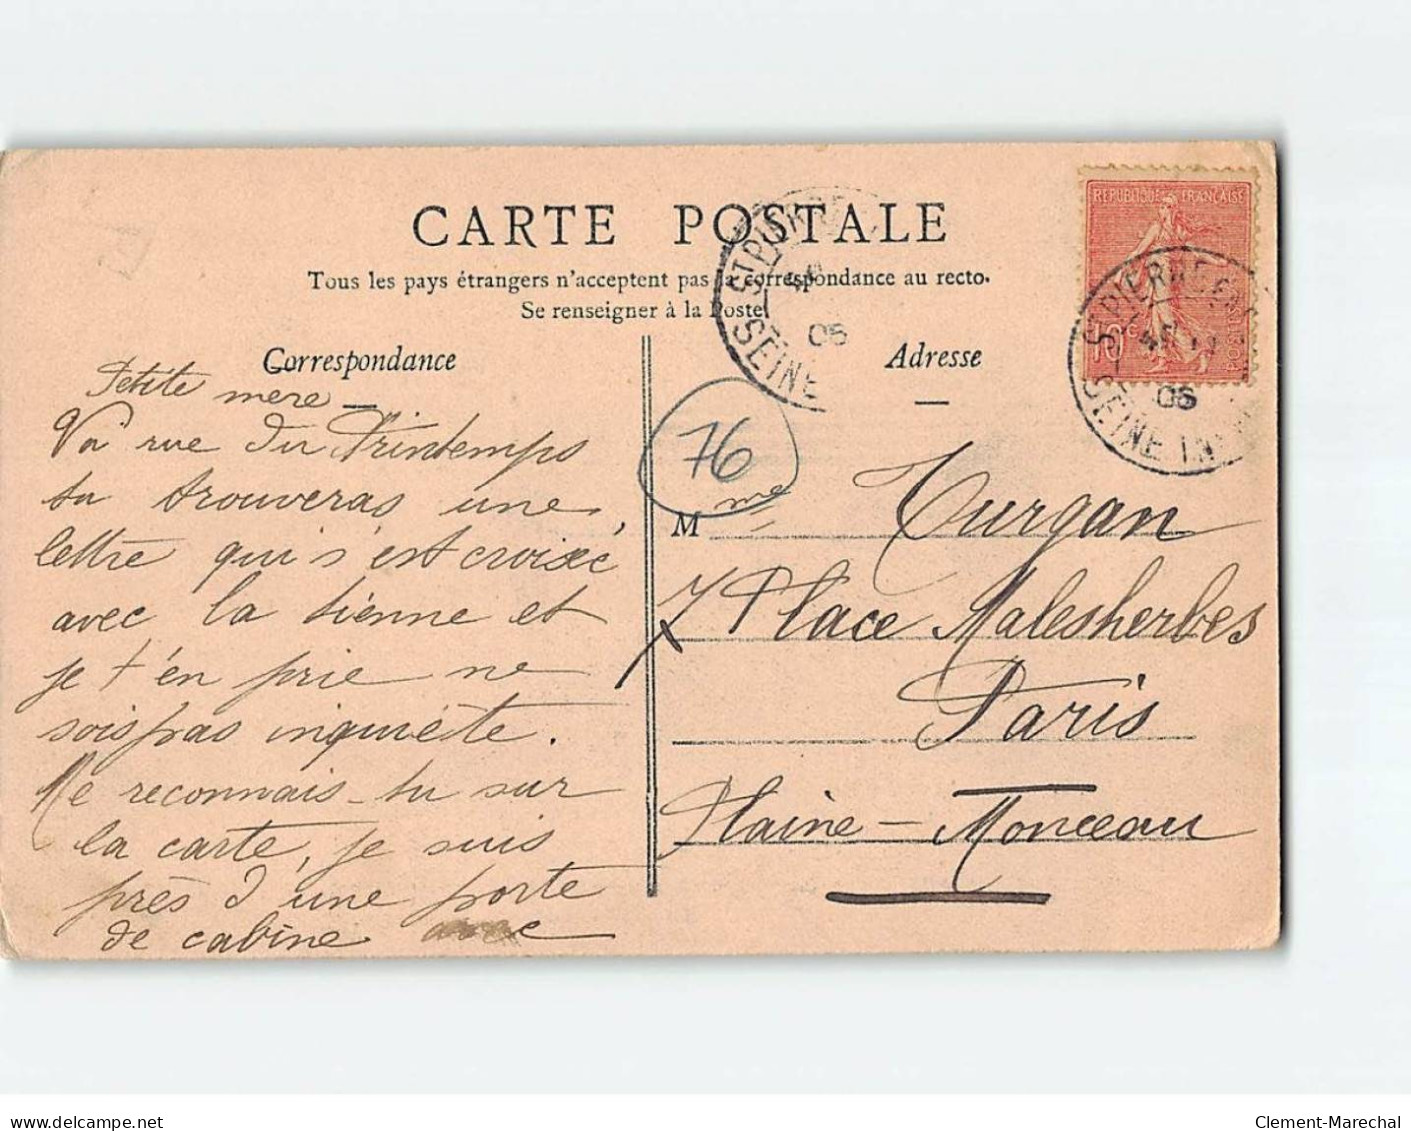 CARTE POSTALE
Tous les pays étrangers n'acceptent pas la correspondance au recto.
Se renseigner à la Poste
Correspondance
Adresse
Petite mere
Va rue du Printemps
tu trouveras une
lettre qui s'est croisée
avec la tienne et
je t'en prie ne
sois pas inquiète.
Me reconnais-tu sur
la carte, je suis
près d'une porte
de cabine avec
76
Mme Turgan
7 Place Malesherbes
Paris
Plaine-Monceau
REPUBLIQUE FRANÇAISE
10c
POSTES
ST PIERRE
SEINE
06
ST PIERRE EN
SEINE INF
06
delcampe.net
Clement-Marechal